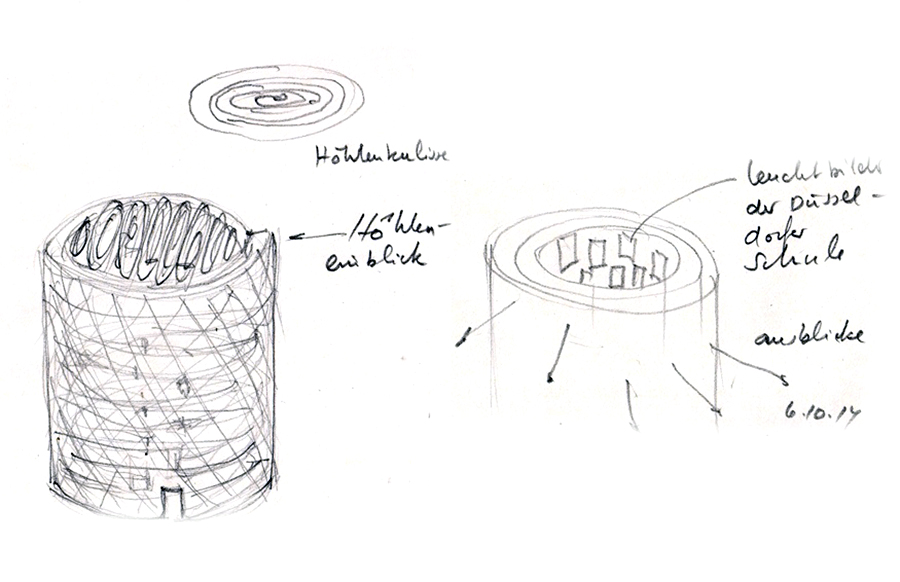 Höhlenkulisse
Höhlen-
einblick
Leuchtbilder
der Düssel-
dorfer
Schule
ausblicke
6.10.14